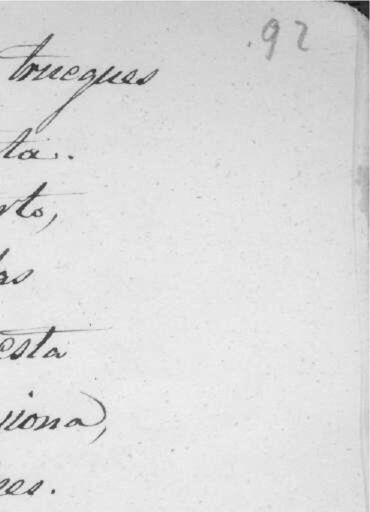 92
trueques
ta.
rto,
las
esta
giona,
nes.